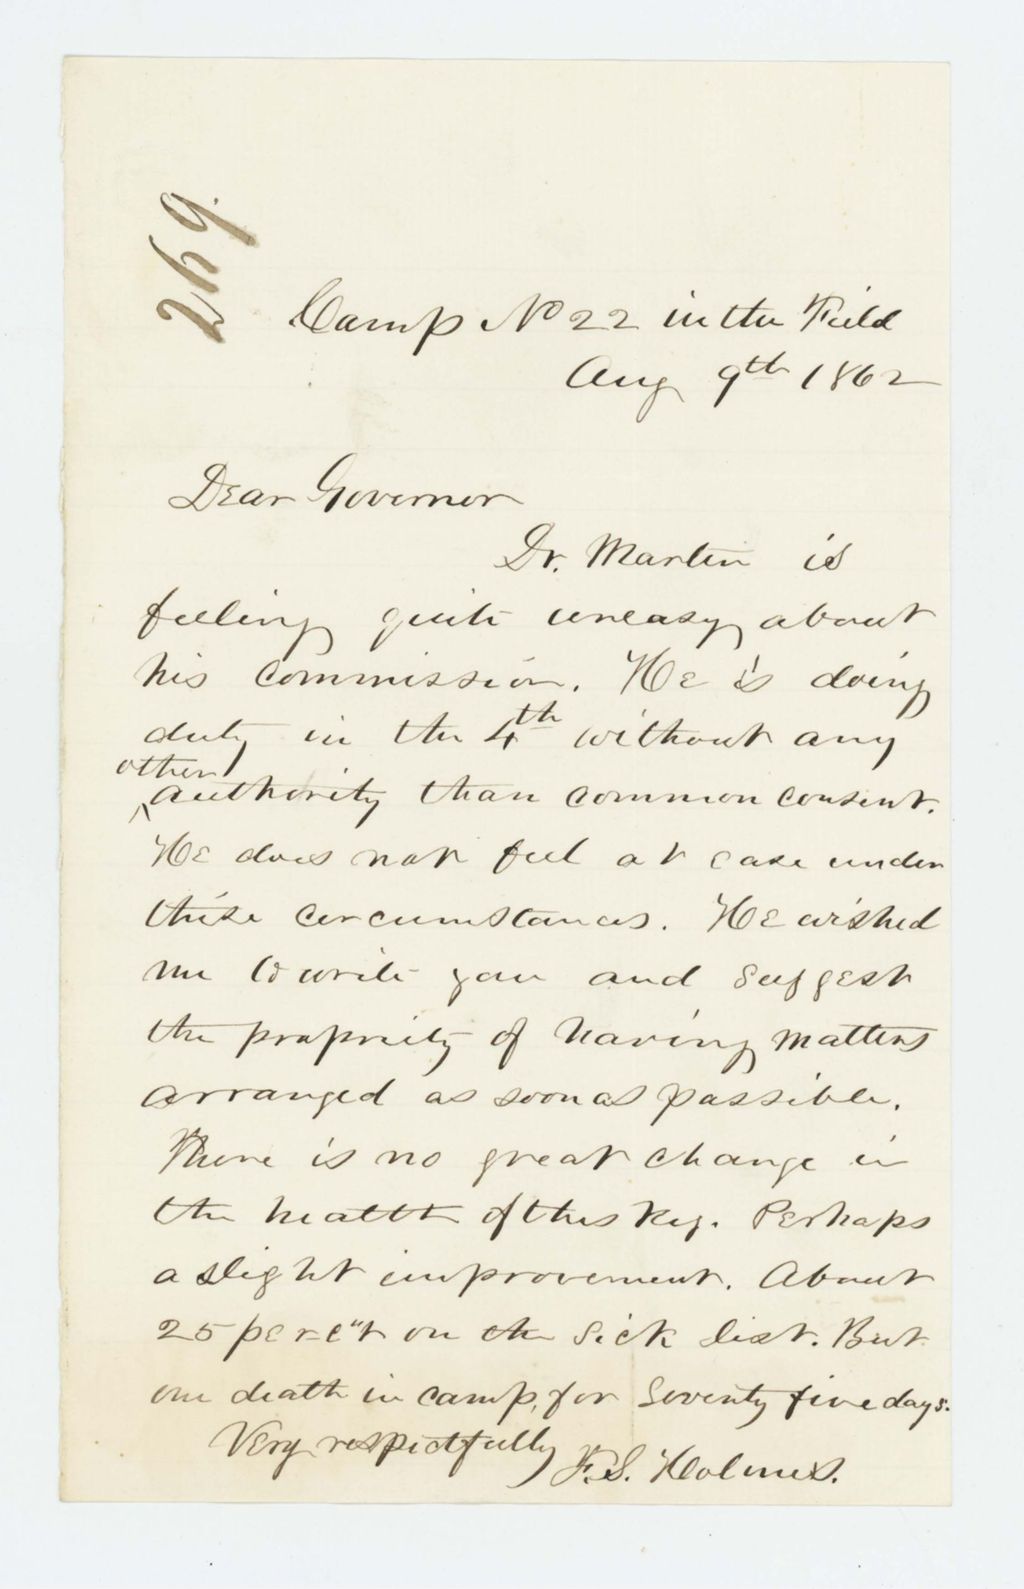 269.
Camp No 22 in the Field
Aug 9th 1862
Dear Governor
Dr. Martin is
feeling quite uneasy about
his commission. He is doing
duty in the 4th without any
other
authority than common consent.
He does not feel at ease under
these circumstances. He wished
me to write you and suggest
the propriety of having matters
arranged as soon as possible.
There is no great change in
the health of this Reg. Perhaps
a slight improvement. About
25 per c"t on the sick list. But
one death in camp, for seventy five days.
Very respectfully
F. S. Holmes.